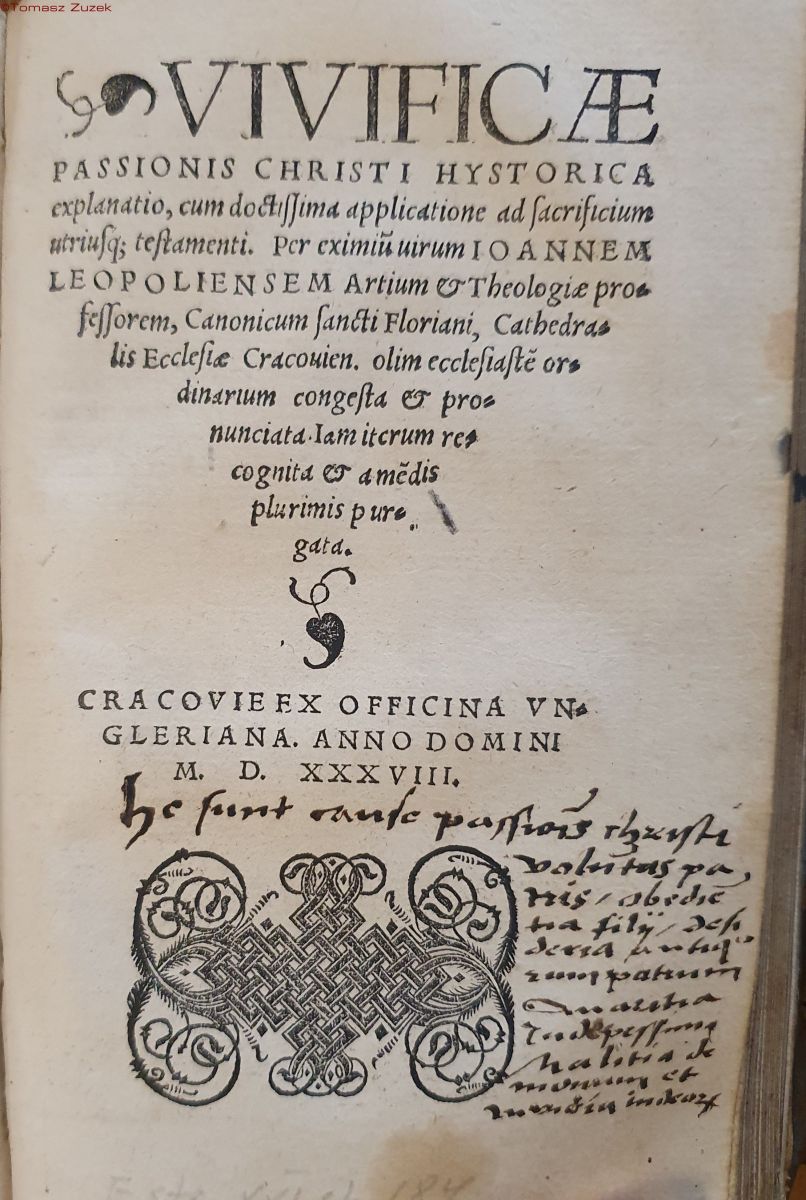 ©Tomasz Zuzek
VIVIFICÆ
PASSIONIS CHRISTI HYSTORICA
explanatio, cum doctissima applicatione ad sacrificium
utriusq; testamenti. Per eximiũ uirum IOANNEM
LEOPOLIENSEM Artium & Theologiæ pro-
fessorem, Canonicum sancti Floriani, Cathedra-
lis Ecclesiæ Cracouien. olim ecclesiastẽ or-
dinarium congesta & pro-
nunciata. Iam iterum re-
cognita & a mẽdis
plurimis pur-
gata.
CRACOVIE EX OFFICINA VN-
GLERIANA. ANNO DOMINI
M. D. XXXVIII.
he sunt cause passiõis christi
volũtas pa
tris / obediẽ
tia filij / desi
deria antiq
rum patrum
Avaritia
Malitia de
monum et